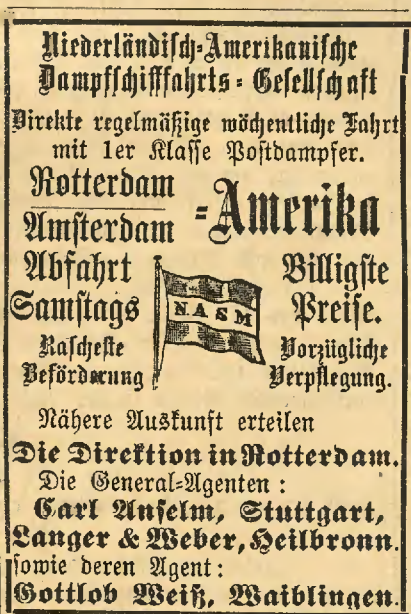 Niederländisch-Amerikanische
Dampfschifffahrts-Gesellschaft
Direkte regelmäßige wöchentliche Fahrt
mit 1er Klasse Postdampfer.
Rotterdam
Amsterdam
-Amerika
Abfahrt
Samstags
N.A.S.M
Billigste
Preise.
Rascheste
Beförderung
Vorzügliche
Verpflegung.
Nähere Auskunft erteilen
Die Direktion in Rotterdam.
Die General-Agenten:
Carl Anselm, Stuttgart,
Langer & Weber, Heilbronn.
sowie deren Agent:
Gottlob Weiß, Waiblingen.